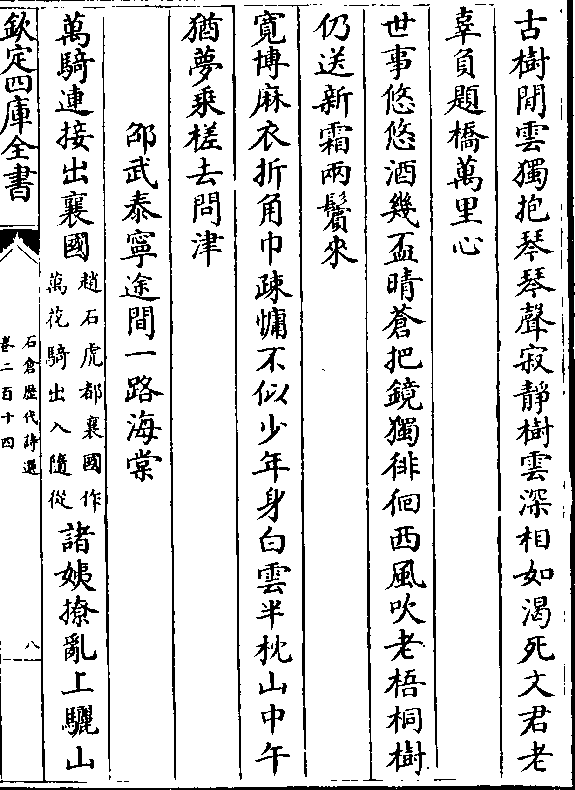 古樹閒雲獨抱琴琴聲寂靜樹雲深相如渴死文君老
辜負題橋萬里心
世事悠悠酒幾盃晴蒼把鏡獨徘徊西風吹老梧桐樹
仍送新霜兩鬢來
寛博麻衣折角巾疎慵不似少年身白雲半枕山中午
猶夢乘槎去問津
邵武泰寧途間一路海棠
萬騎連接出襄國趙石虎都襄國作萬花騎出入隨從諸姨撩亂上驪山
欽定四庫全書
石倉歴代詩選
卷二百十四
八